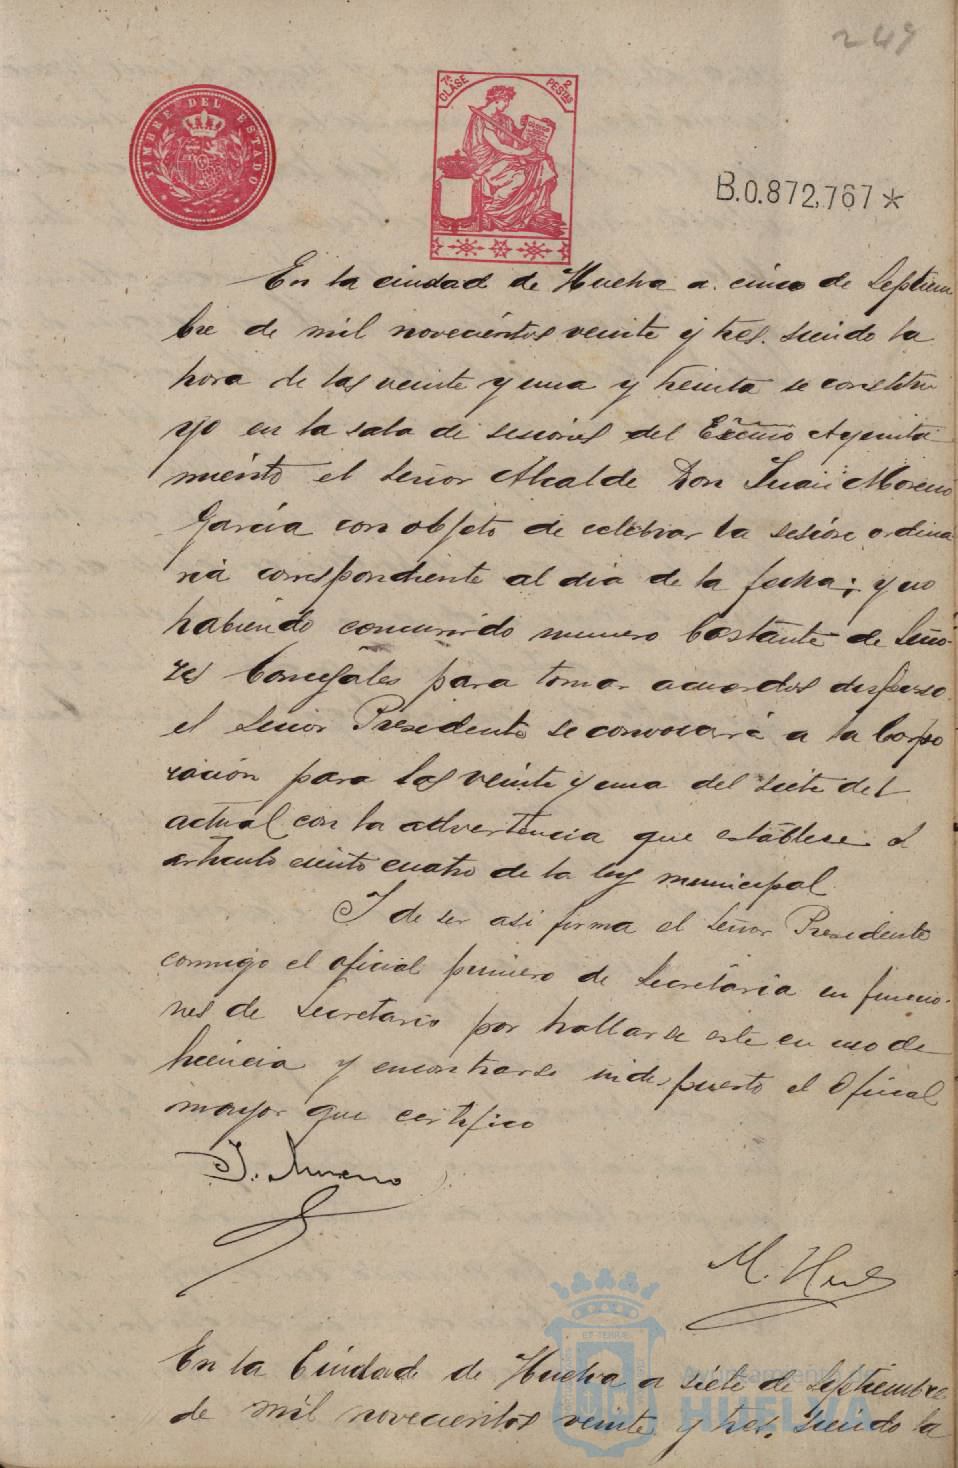 249
TIMBRE DEL ESTADO
7ª CLASE
2 PESTAS
B.0.872,767*
En la ciudad de Huelva a. cinco de Septiem
bre de mil novecientos veinte y tres. siendo la
hora de las veinte y una y treinta se constitu
yo en la sala de sesiones del Excmo Ayunta
miento el Señor Alcalde Don Juan Moreno
García con objeto de celebrar la sesión ordina
ria correspondiente al dia de la fecha; y no
habiendo concurrido numero bastante de Seño-
res Concejales para tomar acuerdos dispuso
el Señor Presidente se convocará a la Corpo
ración para las veinte y una del siete del
actual con la advertencia que establece el
articulo ciento cuatro de la ley municipal.
Y de ser asi firma el Señor Presidente
conmigo el oficial primero de Secretaria en funcio-
nes de Secretario por hallarse este en uso de
licencia y encontrarse indispuesto el Oficial
mayor que certifico
J. Moreno
M.
En la Ciudad de Huelva a siete de Septiembre
de mil novecientos veinte y tres. siendo la
Ayuntamiento de
HUELVA